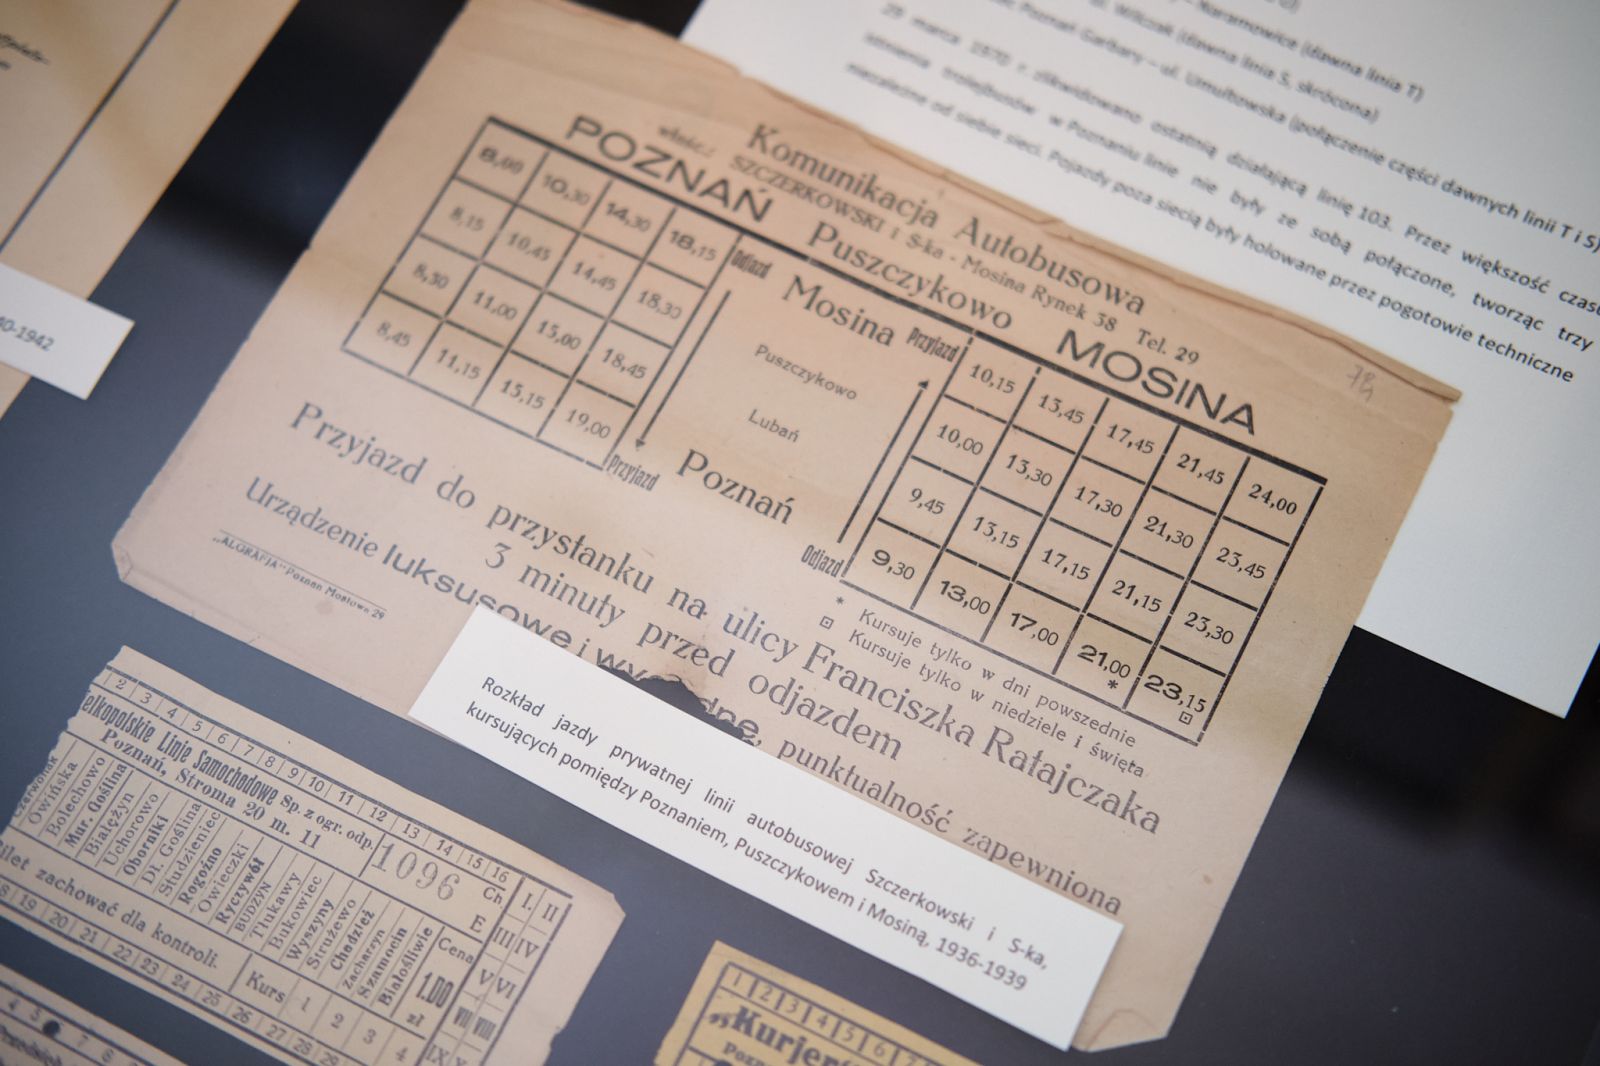 Komunikacja Autobusowa
właśc.: SZCZERKOWSKI i S-ka - Mosina Rynek 38 Tel. 29
POZNAŃ Puszczykowo MOSINA
8,00 10,30 14,30 18,15 Odjazd Mosina Przyjazd 10,15 13,45 17,45 21,45 24,00
8,15 10,45 14,45 18,30 Puszczykowo 10,00 13,30 17,30 21,30 23,45
8,30 11,00 15,00 18,45 Lubań 9,45 13,15 17,15 21,15 23,30
8,45 11,15 15,15 19,00 Przyjazd Poznań Odjazd 9,30 13,00 17,00 21,00 * 23,15 ⊡
* Kursuje tylko w dni powszednie
⊡ Kursuje tylko w niedziele i święta
Przyjazd do przystanku na ulicy Franciszka Ratajczaka
3 minuty przed odjazdem
Urządzenie luksusowe i punktualność zapewniona
„ALGRAFJA" Poznan Mostowa 29
Rozkład jazdy prywatnej linii autobusowej Szczerkowski i S-ka,
kursujących pomiędzy Poznaniem, Puszczykowem i Mosiną, 1936-1939
Naramowice (dawna linia T)
ul. Wilczak (dawna linia S, skrócona)
Poznań Garbary – ul. Umultowska (połączenie części dawnych linii T i S)
29 marca 1970 r. zlikwidowano ostatnią działającą linię 103. Przez większość czasu
istnienia trolejbusów w Poznaniu linie nie były ze sobą połączone, tworząc trzy
niezależne od siebie sieci. Pojazdy poza siecią były holowane przez pogotowie techniczne
40-1942
2 3 4 5 6 7 8 9 10 11 12 13 14 15 16
elkopolskie Linje Samochodowe Sp. z ogr. odp.
Poznań, Stroma 20 m. 11
1096
Ch.
E
Owińska
Bolechowo
Mur. Goślina
Białężyn
Uchorowo
Oborniki
Dł. Goślina
Studzieniec
Rogoźno
Owieczki
Ryczywół
BUDZYN
Tłukawy
Bukowiec
Wyszyny
Strużewo
Chodzież
Zacharzyn
Szamocin
Białośliwie
Cena
1.00
zł
I. II
III IV
V VI
VII VIII
IX X
ilet zachować dla kontroli.
Kurs 1 2 3 4
18 19 20 21 22 23 24 25 26 27 28 29
4 5 7 8
1 2 3 4 5 6 7
„Kurjer